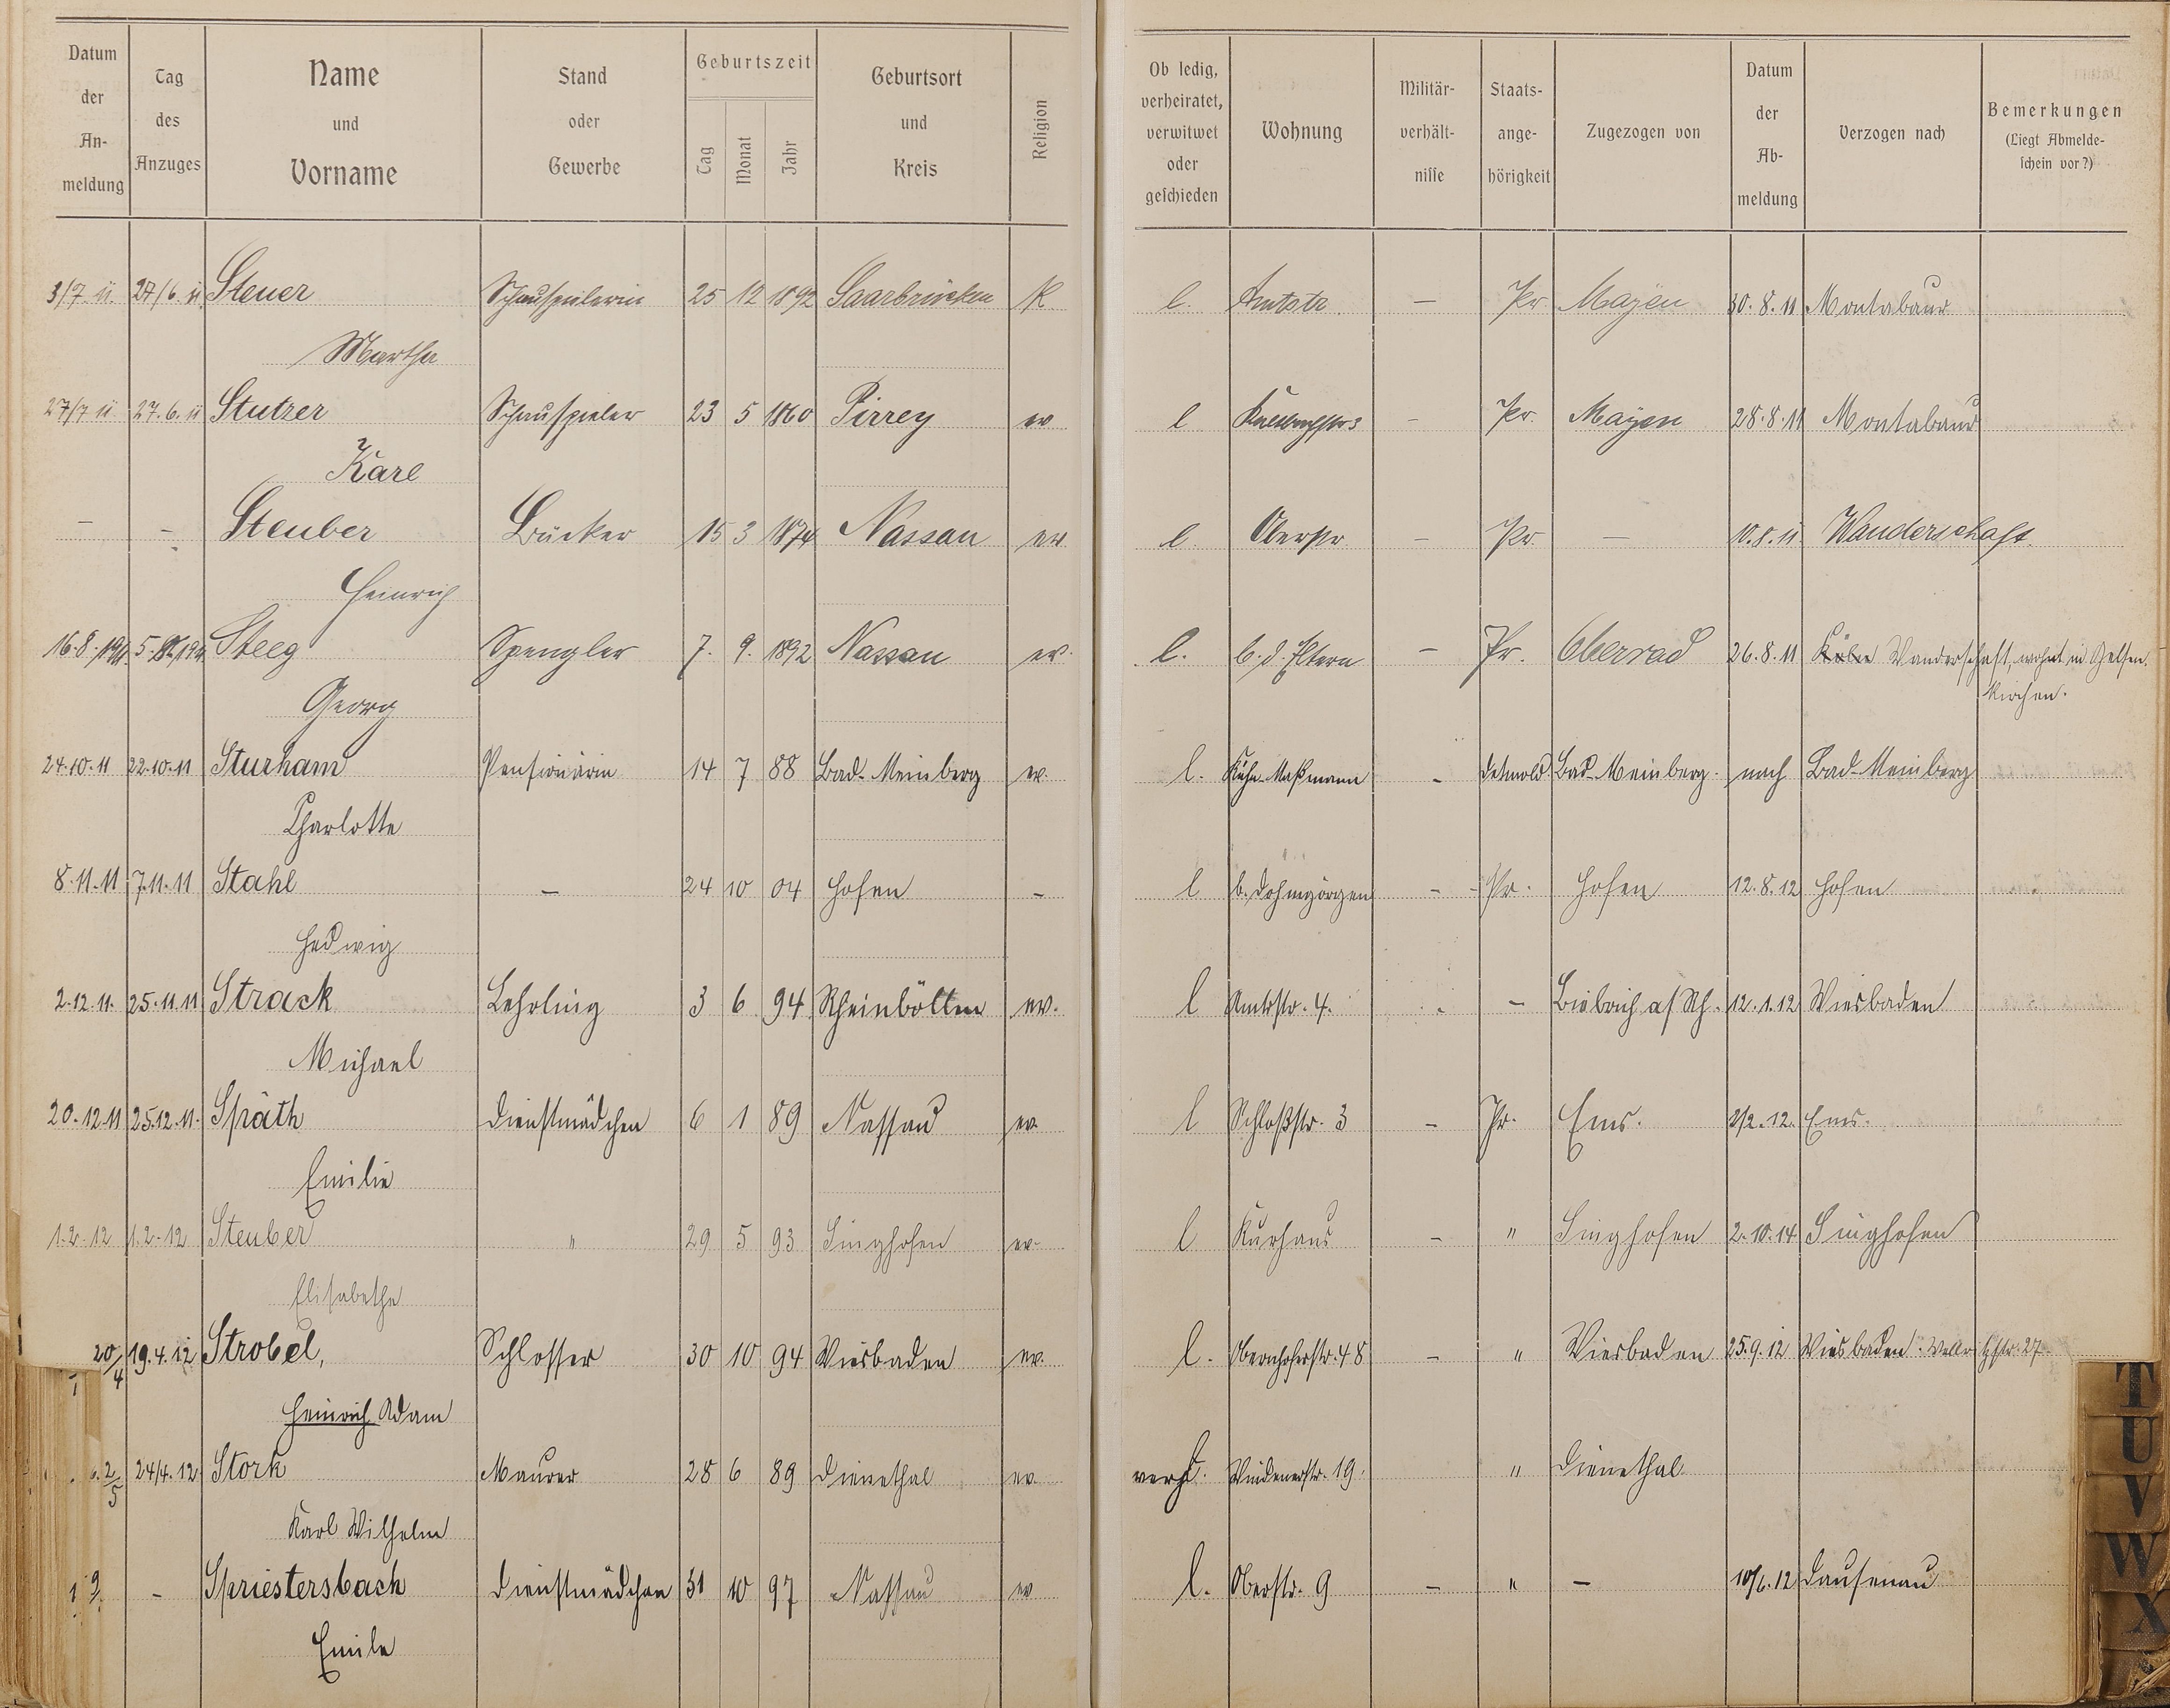 Datum der An- meldung | Tag des Anzuges | Name und Vorname | Stand oder Gewerbe | Geburtszeit Tag Monat Jahr | Geburtsort und Kreis | Religion | Ob ledig, verheiratet, verwitwet oder geschieden | Wohnung | Militär- verhält- nisse | Staats- ange- hörigkeit | Zugezogen von | Datum der Ab- meldung | Verzogen nach | Bemerkungen (Liegt Abmelde- schein vor?)
3/7 11. 27/6. 11 Steuer Schauspielerin 25 12 1892 Saarbrücken K l. Amtstr. – Pr. Mayen 30.8.11 Montabaur
Martha
27/7 11 27.6.11 Stutzer Schauspieler 23 5 1860 Pirrey ev l – Pr. Mayen 28.8.11 Montabaur
Karl
– – Steuber Bäcker 15 3 1874 Nassau ev l. Oberstr. – Pr. – 10.8.11 Wanderschaft.
Heinrich
16.8.1911 Steeg Spengler 7. 9. 1892 Nassau ev. l. b. d. Eltern – Pr. Oberrad 26.8.11 Wanderschaft, wohnt in Gelsen-
kirchen.
Georg
24.10.11 22.10.11 Sturham Pensionärin 14 7 88 Bad-Meinberg ev. l. - Detmold Bad-Meinberg. nach Bad-Meinberg
Charlotte
8.11.11 7.11.11 Stahl – 24 10 04 Hofen – l – Pr. Hofen 12.8.12 Hofen
Hedwig
2.12.11. 25.11.11 Strack Lehrling 3 6 94 Rheinböllen ev. l Amtstr. 4. – Biebrich a/Rh. 12.1.12 Wiesbaden
Michael
20.12.11 25.12.11. Späth Dienstmädchen 6 1 89 Nassau ev. l Schloßstr. 3 – Pr. Ems. 2/2.12. Ems.
Emilie
1.2-12 1.2-12 Steuber " 29 5 93 Singhofen ev. l Kurhaus – " Singhofen 2.10.14 Singhofen
Elisabethe
20/4 19.4.12 Strobel, Schlosser 30 10 94 Wiesbaden ev. l. Obernhoferstr. 48 – " Wiesbaden 25.9.12 Wiesbaden. Wellritzstr. 27.
Heinrich Adam
2/5 24/4.12 Stork Maurer 28 6 89 Dienethal ev. verh. Windenerstr. 19. " Dienethal
Karl Wilhelm
– Spriestersbach Dienstmädchen 31 10 97 Nassau ev l. Oberstr. 9 – " – 10/6.12 Dausenau
Emile
T
U
V
W
X